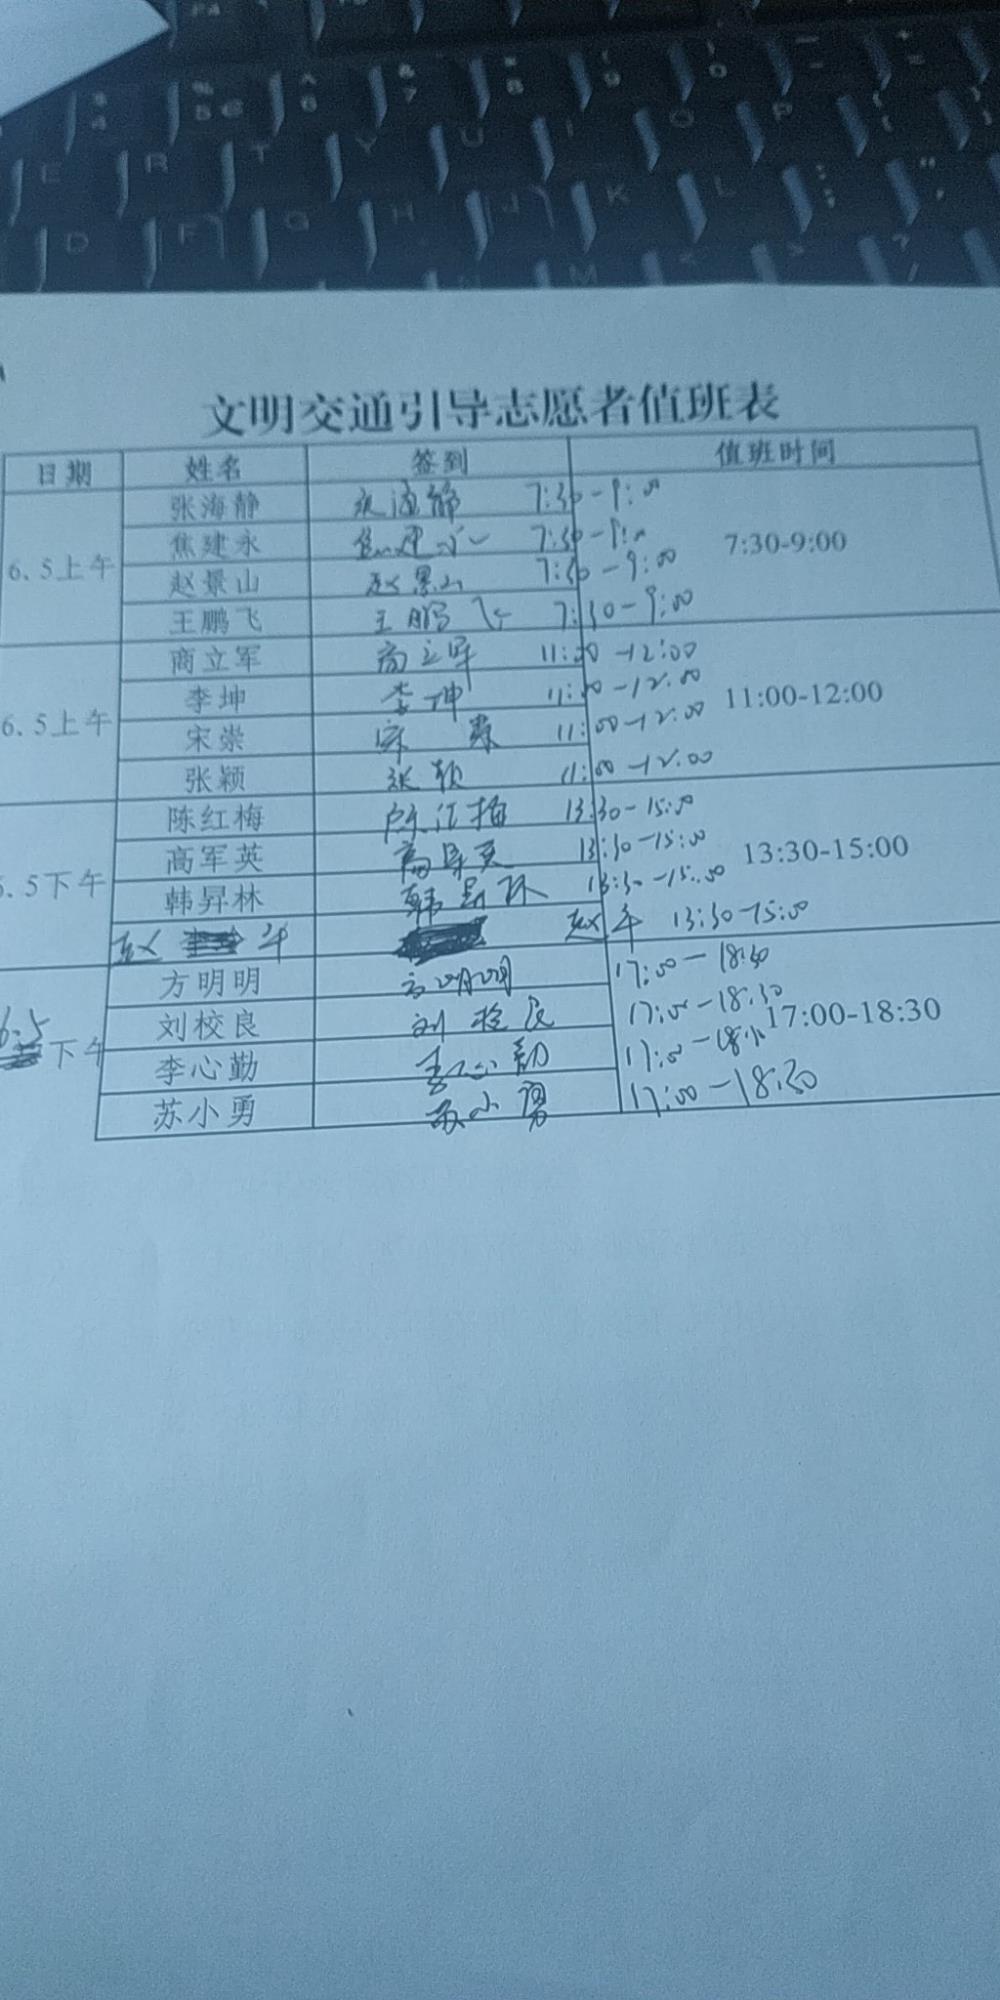 文明交通引导志愿者值班表
日期 姓名 签到 值班时间
张海静 张海静 7:30-9:00
焦建永 焦建永 7:30-9:00
6.5上午 7:30-9:00
赵景山 赵景山 7:30-9:00
王鹏飞 王鹏飞 7:30-9:00
商立军 商立军 11:00-12:00
李坤 李坤 11:00-12:00
6.5上午 11:00-12:00
宋崇 宋崇 11:00-12:00
张颖 张颖 11:00-12:00
陈红梅 陈红梅 13:30-15:00
高军英 高军英 13:30-15:00
.5下午 13:30-15:00
韩昇林 韩昇林 13:30-15:00
赵 午 赵午 13:30-15:00
方明明 方明明 17:00-18:30
刘校良 刘校良 17:00-18:30
6.5下午 17:00-18:30
李心勤 李心勤 17:00-18:30
苏小勇 苏小勇 17:00-18:30